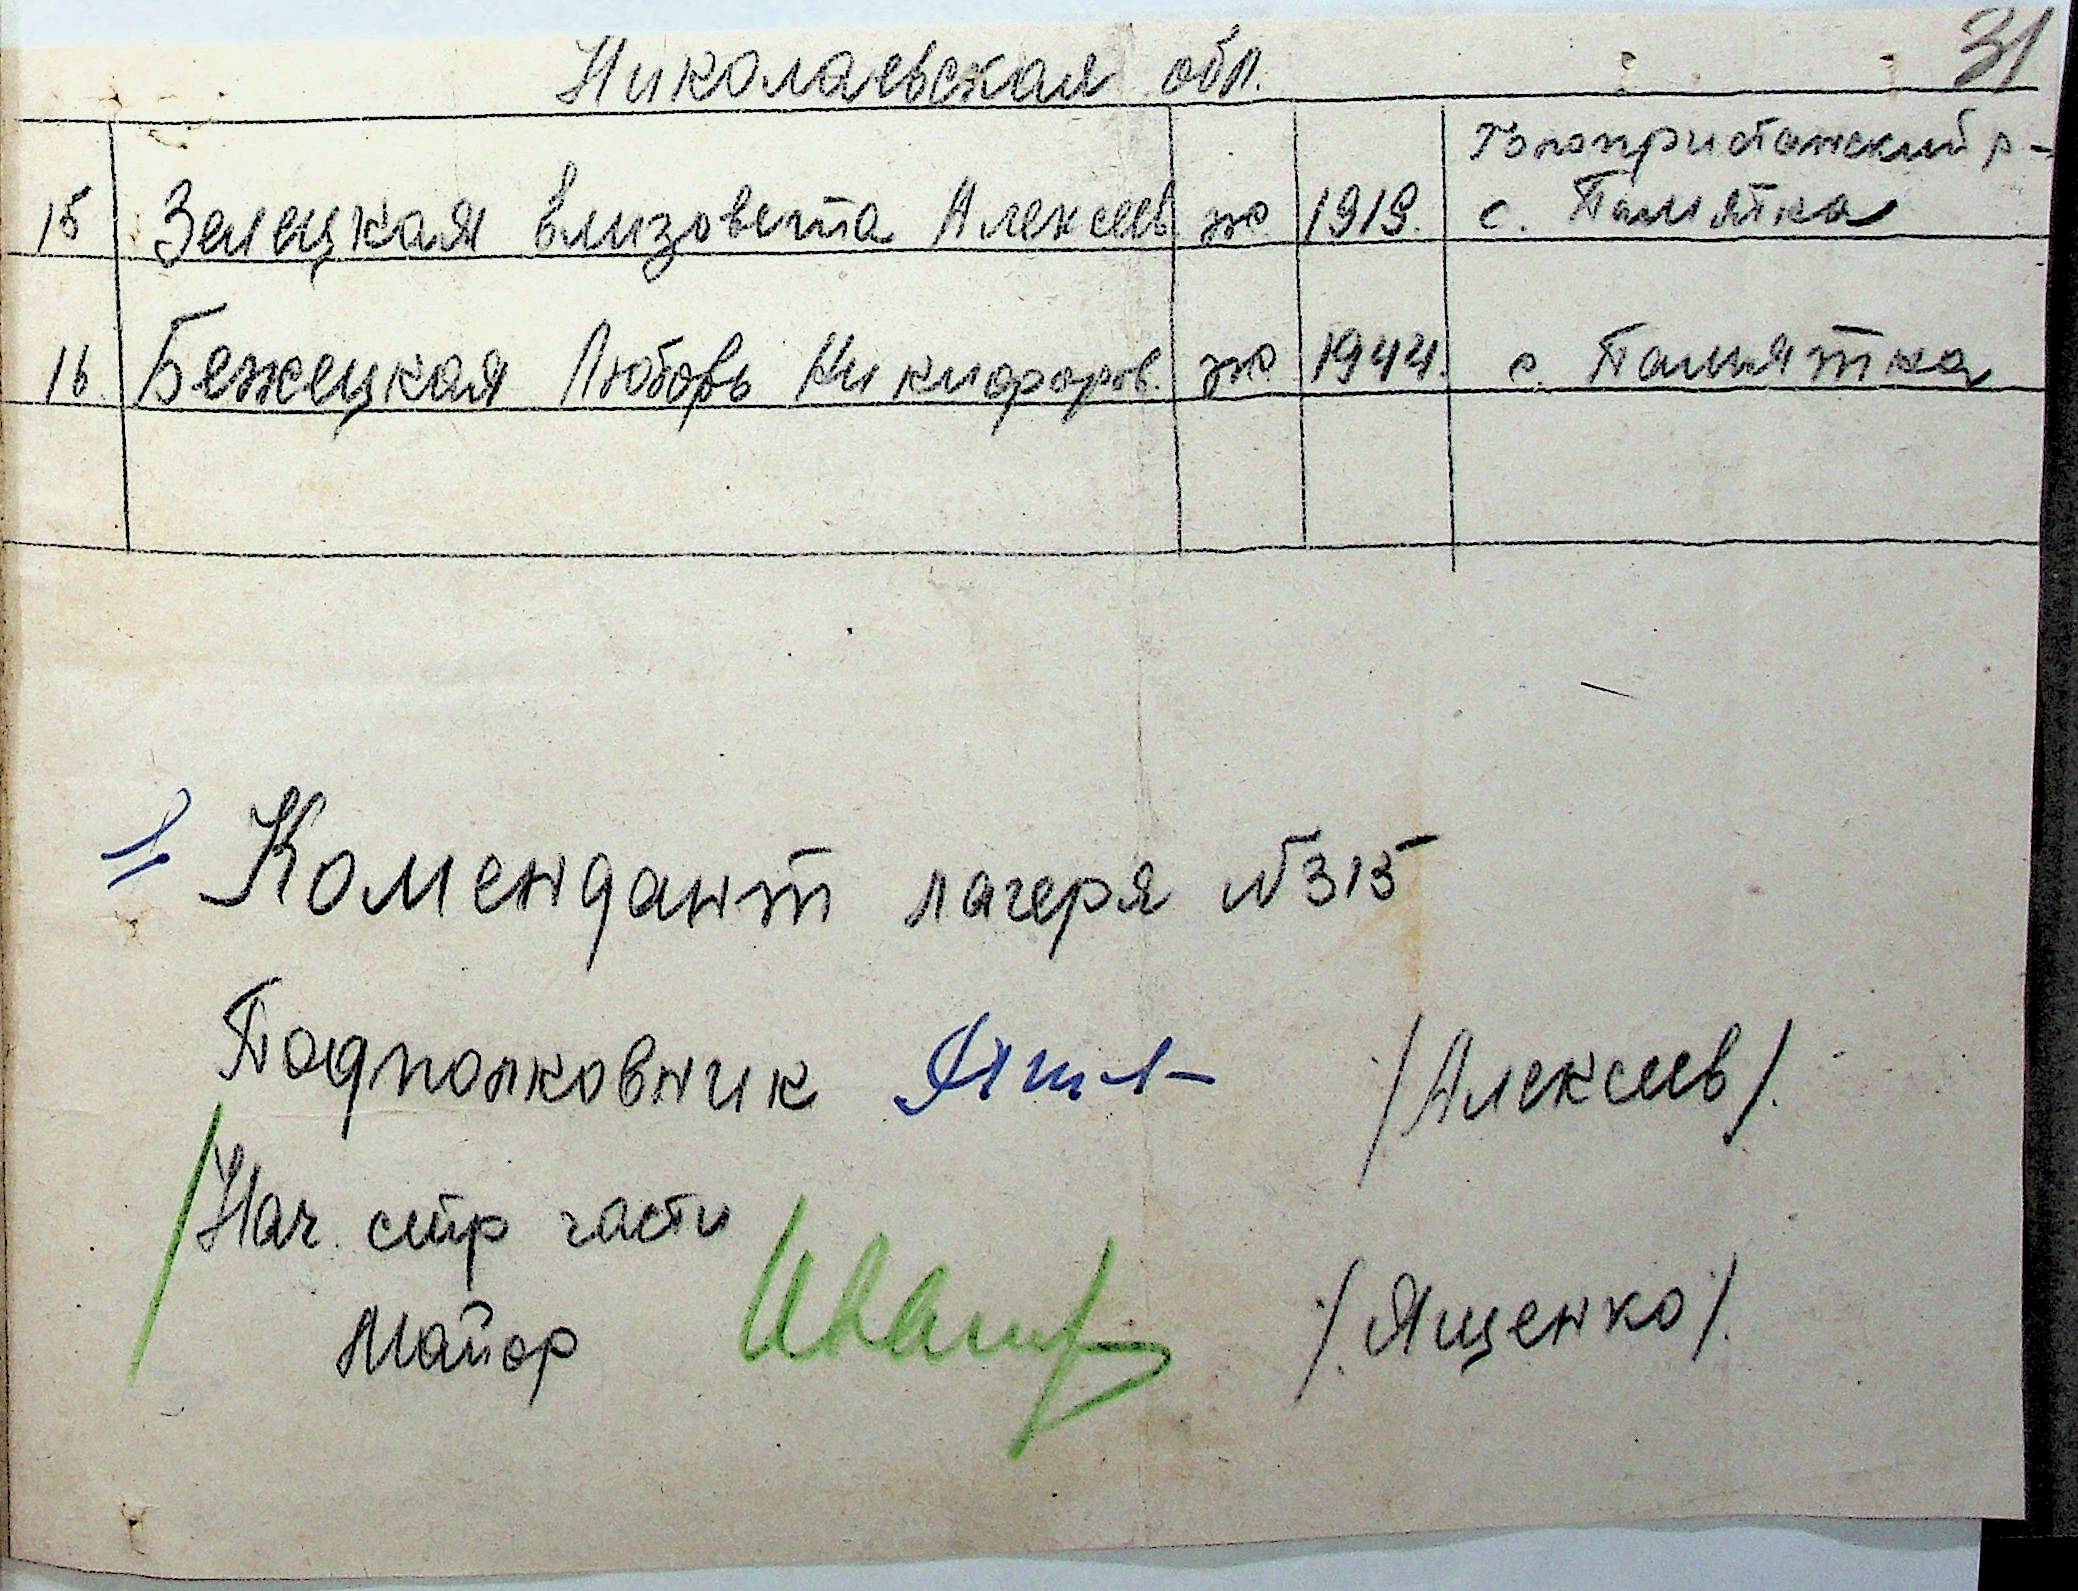 31
Николаевская обл.
Голопристанский р-
15 Зелецкая Елизовета Алексеев ж. 1919. с. Памятка
16. Бежецкая Любовь Никифоров. ж. 1944. с. Памятка
Комендант лагеря №315
Подполковник /Алексеев/.
Нач. стр части
Майор /Ященко/.